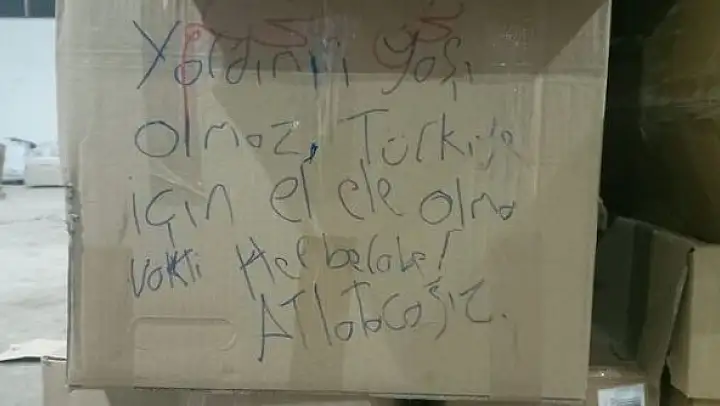 Yardımın yaşı
olmaz, Türkiye
için el ele olma
vakti Hep beraber!
Atlatacağız.